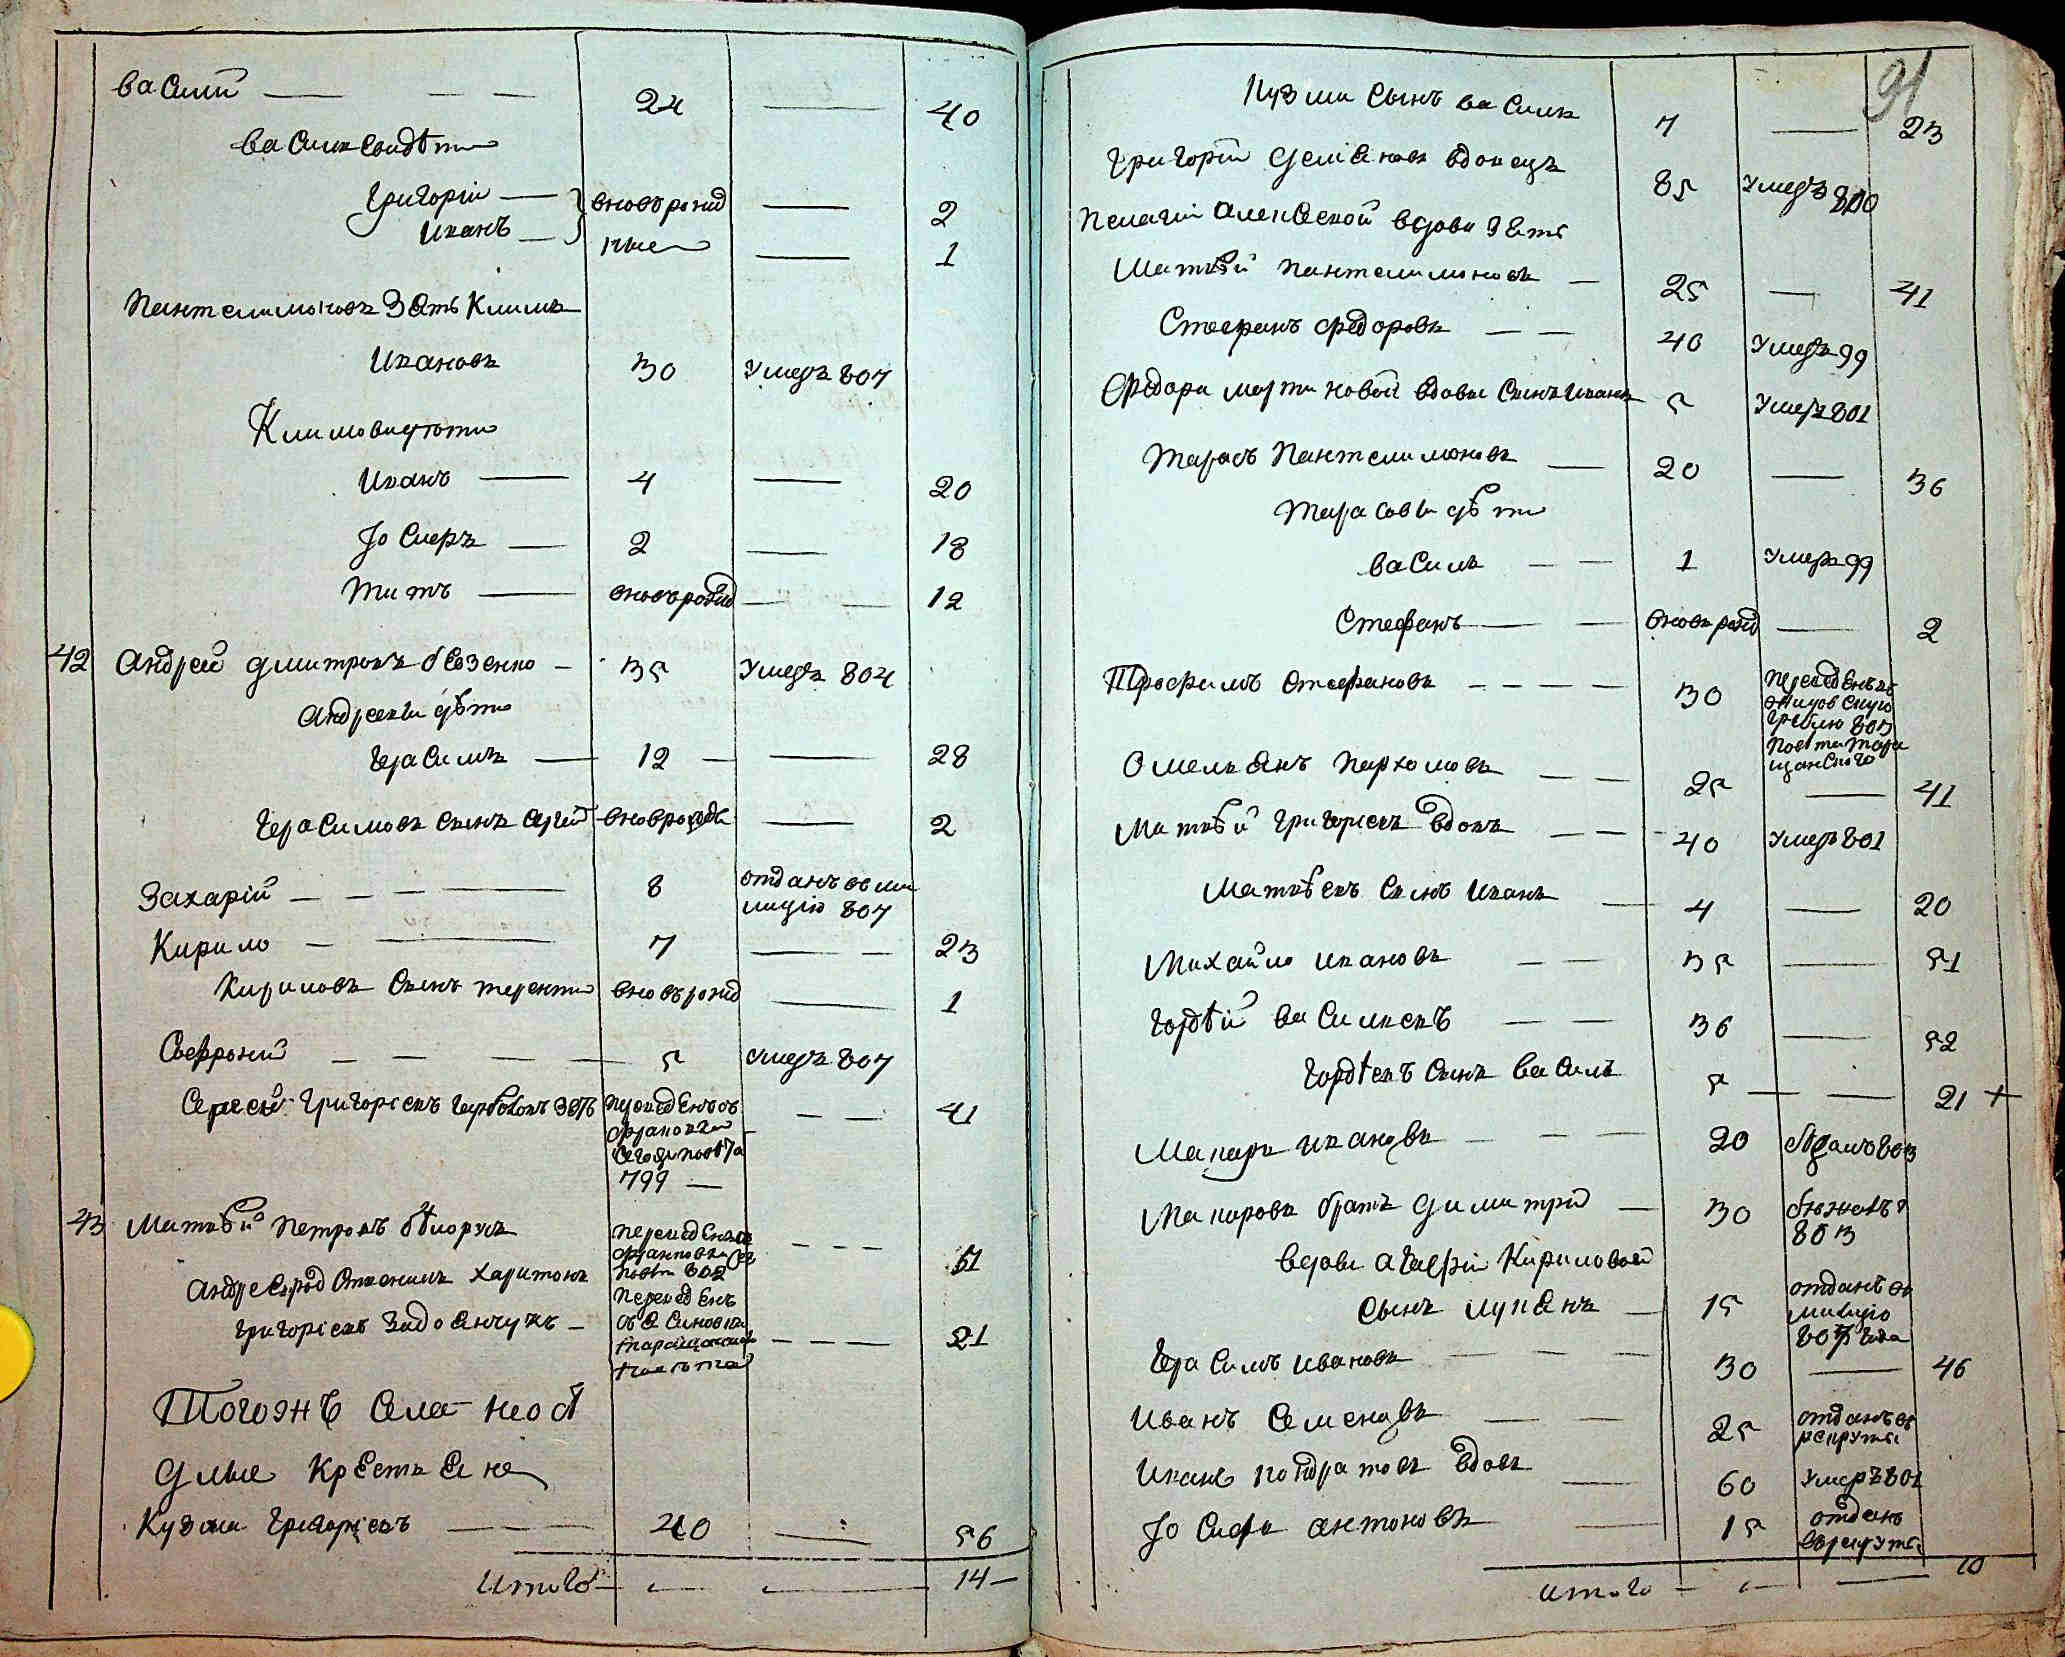 василий — — — 24 — 40
василевы дѣти
Григорій — } вновьрожд — 2
Иванъ — } ные — 1
Пантелимоновъ зять Климъ
Ивановъ 30 умеръ 807
Климовы дѣти
Иванъ — 4 — 20
Іосифъ — 2 — 18
Титъ — вновьрожд — — 12
42 Андрей Дмитровъ — 35 умеръ 804
Андреевы дѣти
Герасимъ — 12 — — 28
Герасимовъ сынъ Сергій вноврожд — 2
Захарій — — — — 8 отданъ въ ми
лицію 807
Кирило — — 7 — — 23
Кириловъ сынъ терентій вновьрожд — 1
Софроній — — — — 5 умеръ 807
Григоріевъ зять переведенъ съ — — 41
799 —
43 Матвѣй Петровъ бѣлорусъ переведенъ — — — 51
802
харитонъ переведенъ
Григоріевъ — — — — 21
таращанскаго
повѣта
Тогожъ села необ
дные Крестьяне
Кузма Григоріевъ — — — 40 — 56
Итого — — — 14 —
91
Кузми сынъ василь 7 — 23
Григорій Семеновъ вдовецъ 85 умеръ 800
Пелагіи Алексеевой вдовы зять
Матвѣй Пантелимоновъ — 25 — 41
Стефанъ федоровъ — — 40 умеръ 99
Федоры мартиновой вдовы сынъ Иванъ 5 умеръ 801
Тарасъ Пантелимоновъ — 20 — 36
Тарасовы дѣти
василь — — 1 умеръ 99
Стефанъ — — вновьрожд — 2
Трофимъ Стефановъ — — — — 30 переведенъ въ
греблю 803
повѣта Тара
щанского
Омельянъ Пархомовъ — — 25 — 41
Матвѣй Григоріевъ вдовъ — — — 40 умеръ 801
Матвѣевъ сынъ Иванъ — 4 — 20
Михайло Ивановъ — — 35 — 51
Гордѣй василиевъ — — 36 — 52
Гордѣевъ сынъ василь 5 — — 21 +
Макаръ Ивановъ — — — 20 803
Макаровъ братъ Димитрій — 30 бѣжавъ
803
вдовы Агафіи Кириловой
сынъ лукянъ — 15 отданъ въ
милицію
807 года
Герасимъ Ивановъ — — — 30 — 46
Иванъ Семеновъ — — 25 отданъ въ
рекруты
Иванъ Кондратовъ вдовъ — 60 умеръ 801
Іосифъ антоновъ — 15 отданъ
въ рекруты
итого — — — 10